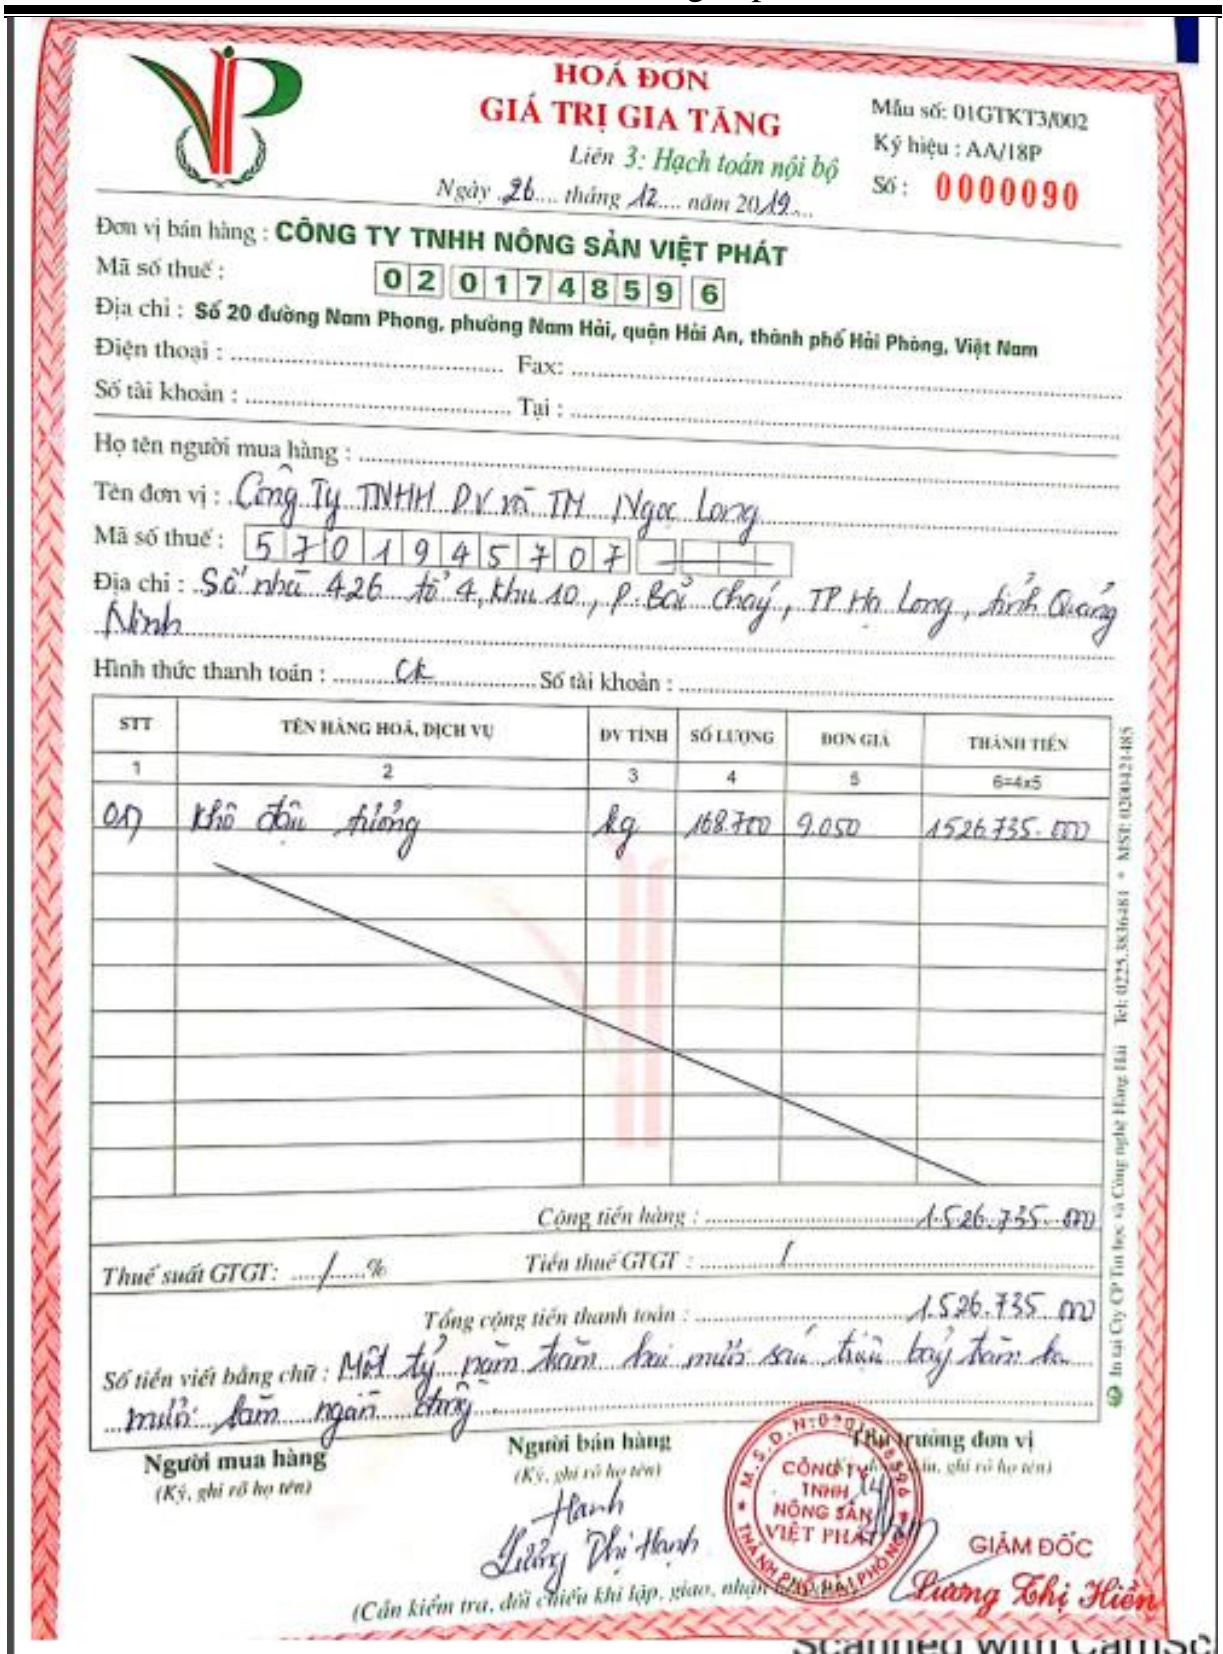 HOÁ ĐƠN
GIÁ TRỊ GIA TĂNG
Liên 3: Hạch toán nội bộ
Ngày 26 tháng 12 năm 2019
Mẫu số: 01GTKT3/002
Ký hiệu : AA/18P
Số : 0000090
Đơn vị bán hàng : CÔNG TY TNHH NÔNG SẢN VIỆT PHÁT
Mã số thuế : 0201748596
Địa chỉ : Số 20 đường Nam Phong, phường Nam Hải, quận Hải An, thành phố Hải Phòng, Việt Nam
Điện thoại : Fax:
Số tài khoản : Tại :
Họ tên người mua hàng :
Tên đơn vị : Công Ty TNHH DV và TM Ngọc Long
Mã số thuế : 5701945707
Địa chỉ : Số nhà 426 tổ 4, khu 10, P. Bãi Cháy, TP Hạ Long, tỉnh Quảng
Ninh
Hình thức thanh toán : CK Số tài khoản :
STT TÊN HÀNG HOÁ, DỊCH VỤ ĐV TÍNH SỐ LƯỢNG ĐƠN GIÁ THÀNH TIỀN
1 2 3 4 5 6=4x5
01 Khô đậu tương kg 168.700 9.050 1526.735.000
Cộng tiền hàng : 1.526.735.000
Thuế suất GTGT: / % Tiền thuế GTGT : /
Tổng cộng tiền thanh toán : 1.526.735.000
Số tiền viết bằng chữ : Một tỷ năm trăm hai mươi sáu triệu bảy trăm ba
mươi lăm ngàn đồng
In tại Cty CP Tin học và Công nghệ Hàng Hải Tel: 0225.3836481 * MST: 0200421485
Người mua hàng
(Ký, ghi rõ họ tên)
Người bán hàng
(Ký, ghi rõ họ tên)
Hạnh
Lương Thị Hạnh
Thủ trưởng đơn vị
ghi rõ họ tên)
CÔNG TY
TNHH
NÔNG SẢN
VIỆT PHÁT
GIÁM ĐỐC
Lương Thị Hiền
(Cần kiểm tra, đối chiếu khi lập, giao, nhận
Scanned with CamSc